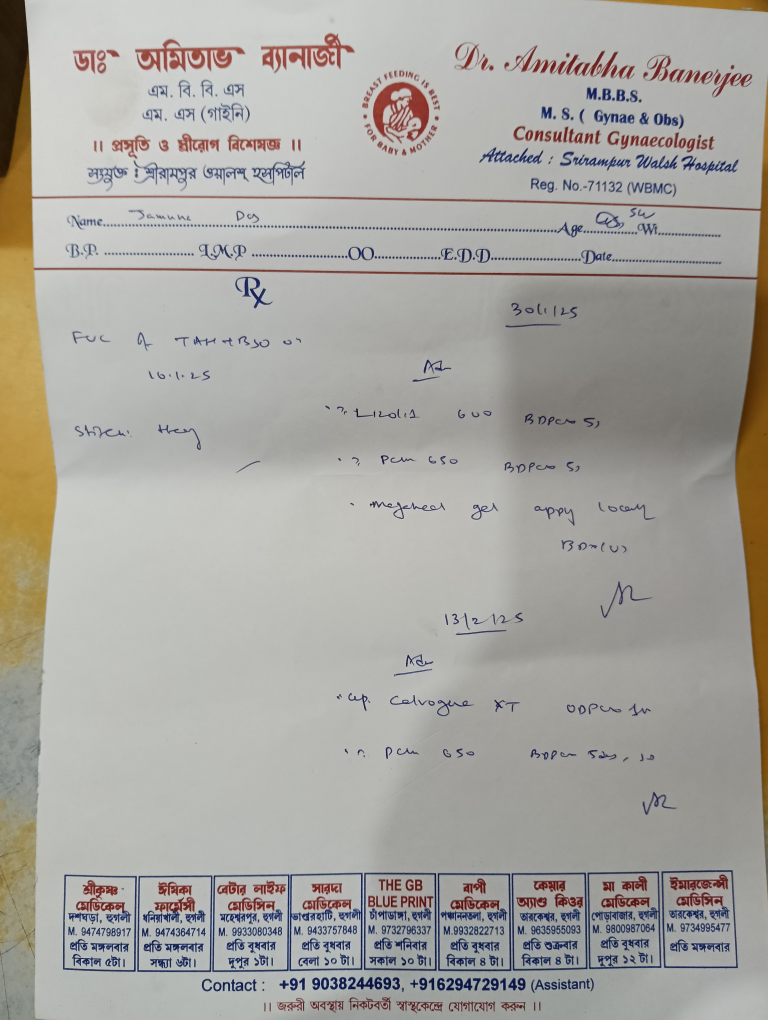 ডাঃ অমিতাভ ব্যানার্জী
এম. বি. বি. এস
এম. এস (গাইনি)
।। প্রসূতি ও স্ত্রীরোগ বিশেষজ্ঞ ।।
সংযুক্ত : শ্রীরামপুর ওয়ালশ্ হসপিটাল
BREAST FEEDING IS BEST
FOR BABY & MOTHER
Dr. Amitabha Banerjee
M.B.B.S.
M. S. ( Gynae & Obs)
Consultant Gynaecologist
Attached : Srirampur Walsh Hospital
Reg. No.-71132 (WBMC)
Name Jamuna Das Age Wt
B.P. L.M.P OO E.D.D Date
Rx
30/1/25
FUC of TAH+BSO on
16.1.25
Adv
Stitch
600 BDPC
PCM 650 BDPC
gel apply locally
13/2/25
Adv
Cap. XT ODPC
PCM 650 BDPC
শ্রীকৃষ্ণ মেডিকেল
দশঘড়া, হুগলী
M. 9474798917
প্রতি মঙ্গলবার
বিকাল ৫টা।
ঈশিকা ফার্মেসী
ধনিয়াখালী, হুগলী
M. 9474364714
প্রতি মঙ্গলবার
সন্ধ্যা ৬টা।
বেটার লাইফ মেডিসিন
মহেশ্বরপুর, হুগলী
M. 9933080348
প্রতি বুধবার
দুপুর ১টা।
সারদা মেডিকেল
ভাণ্ডারহাটি, হুগলী
M. 9433757848
প্রতি বুধবার
বেলা ১০ টা।
THE GB BLUE PRINT
চাঁপাডাঙ্গা, হুগলী
M. 9732796337
প্রতি শনিবার
সকাল ১০ টা।
বাপী মেডিকেল
পঞ্চাননতলা, হুগলী
M.9932822713
প্রতি বুধবার
বিকাল ৪ টা।
কেয়ার অ্যাণ্ড কিওর
তারকেশ্বর, হুগলী
M. 9635955093
প্রতি শুক্রবার
বিকাল ৪ টা।
মা কালী মেডিকেল
পোড়াবাজার, হুগলী
M. 9800987064
প্রতি বুধবার
দুপুর ১২ টা।
ইমারজেন্সী মেডিসিন
তারকেশ্বর, হুগলী
M. 9734995477
প্রতি মঙ্গলবার
Contact : +91 9038244693, +916294729149 (Assistant)
।। জরুরী অবস্থায় নিকটবর্তী স্বাস্থ্যকেন্দ্রে যোগাযোগ করুন ।।